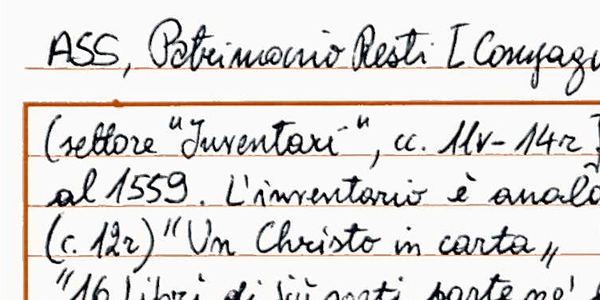 ASS, Patrimonio Resti [Compag
(settore "Inventari", cc. 11v-14r]
al 1559. L'inventario è analo
(c. 12r) "Un Christo in carta"
"16 libri di più sorti parte no'